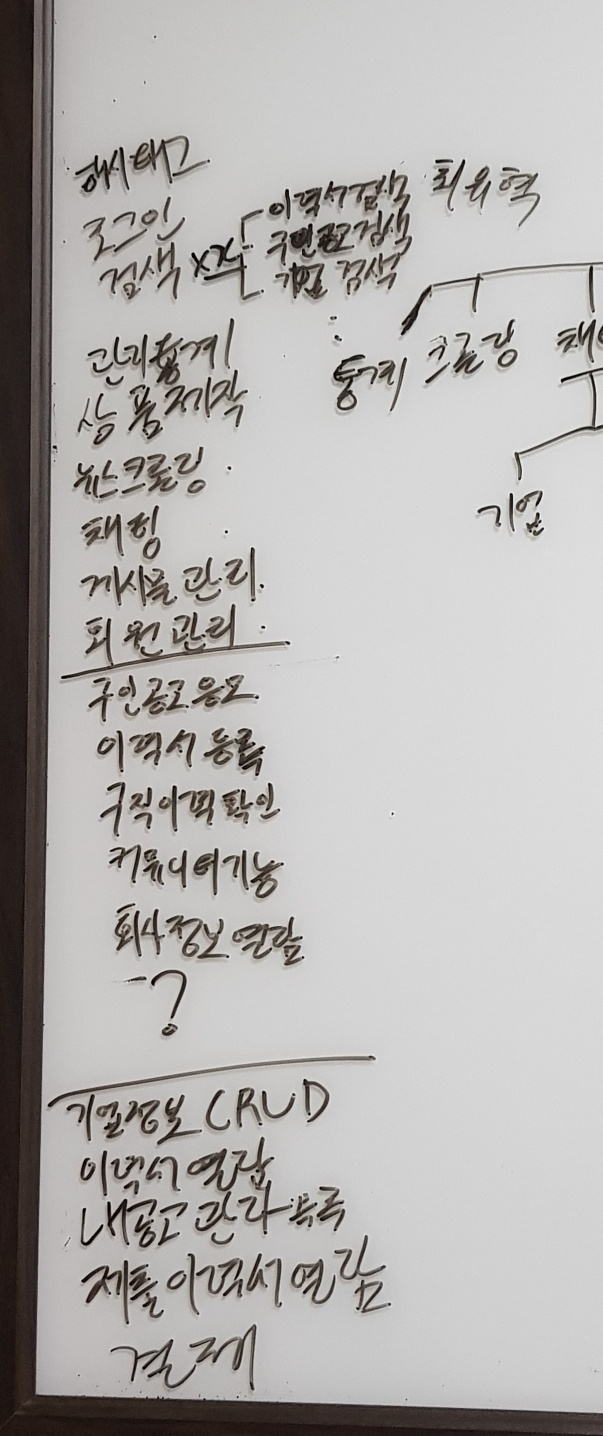 해시태그
로그인
검색
이력서검색
구인공고 검색
기업 검색
최유혁
관리통계
상품제작
뉴스크롤링
채팅
게시물 관리
회원관리
통계 크롤링
기업
구인공고응모
이력서 등록
구직이력 확인
커뮤니티기능
회사정보 열람
- ?
기업정보 CRUD
이력서 열람
내공고 관리 등록
제출이력서열람
결제